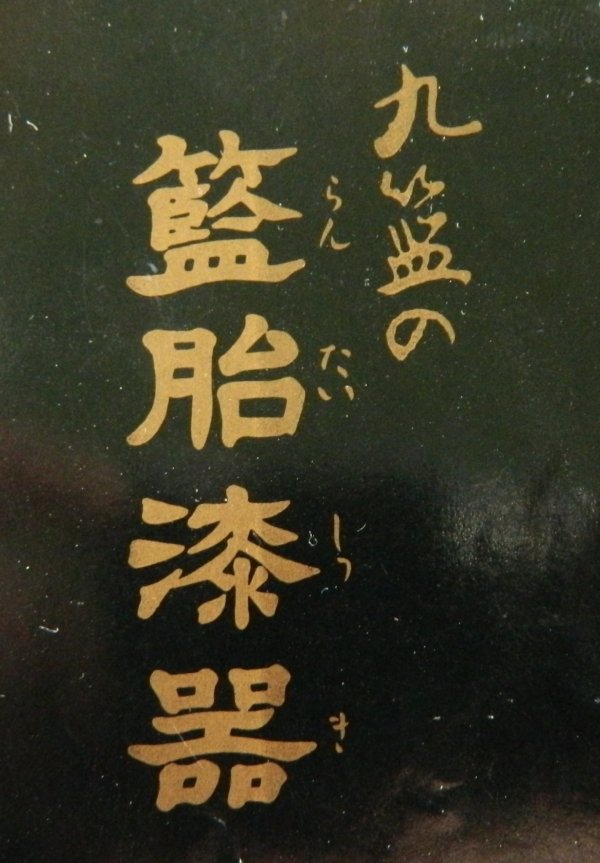 九籃の
籃胎漆器
らんたいしつき